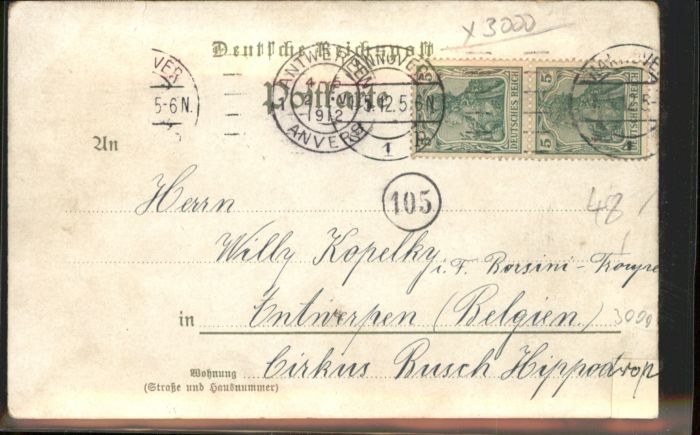 x 3000
Deutsche Reichspost
Postkarte
HANNOVER
5-6 N.
ANTWERPEN
1912
ANVERS
HANNOVER
5.12.5-6N.
1
DEUTSCHES REICH
5
DEUTSCHES REICH
5
HANNOVER
1
An
105
Herrn
48
Willy Kopelky
i. F. Borsini-Troupe
in Entwerpen (Belgien)
3000
Wohnung Cirkus Busch Hippodrop
(Straße und Hausnummer)